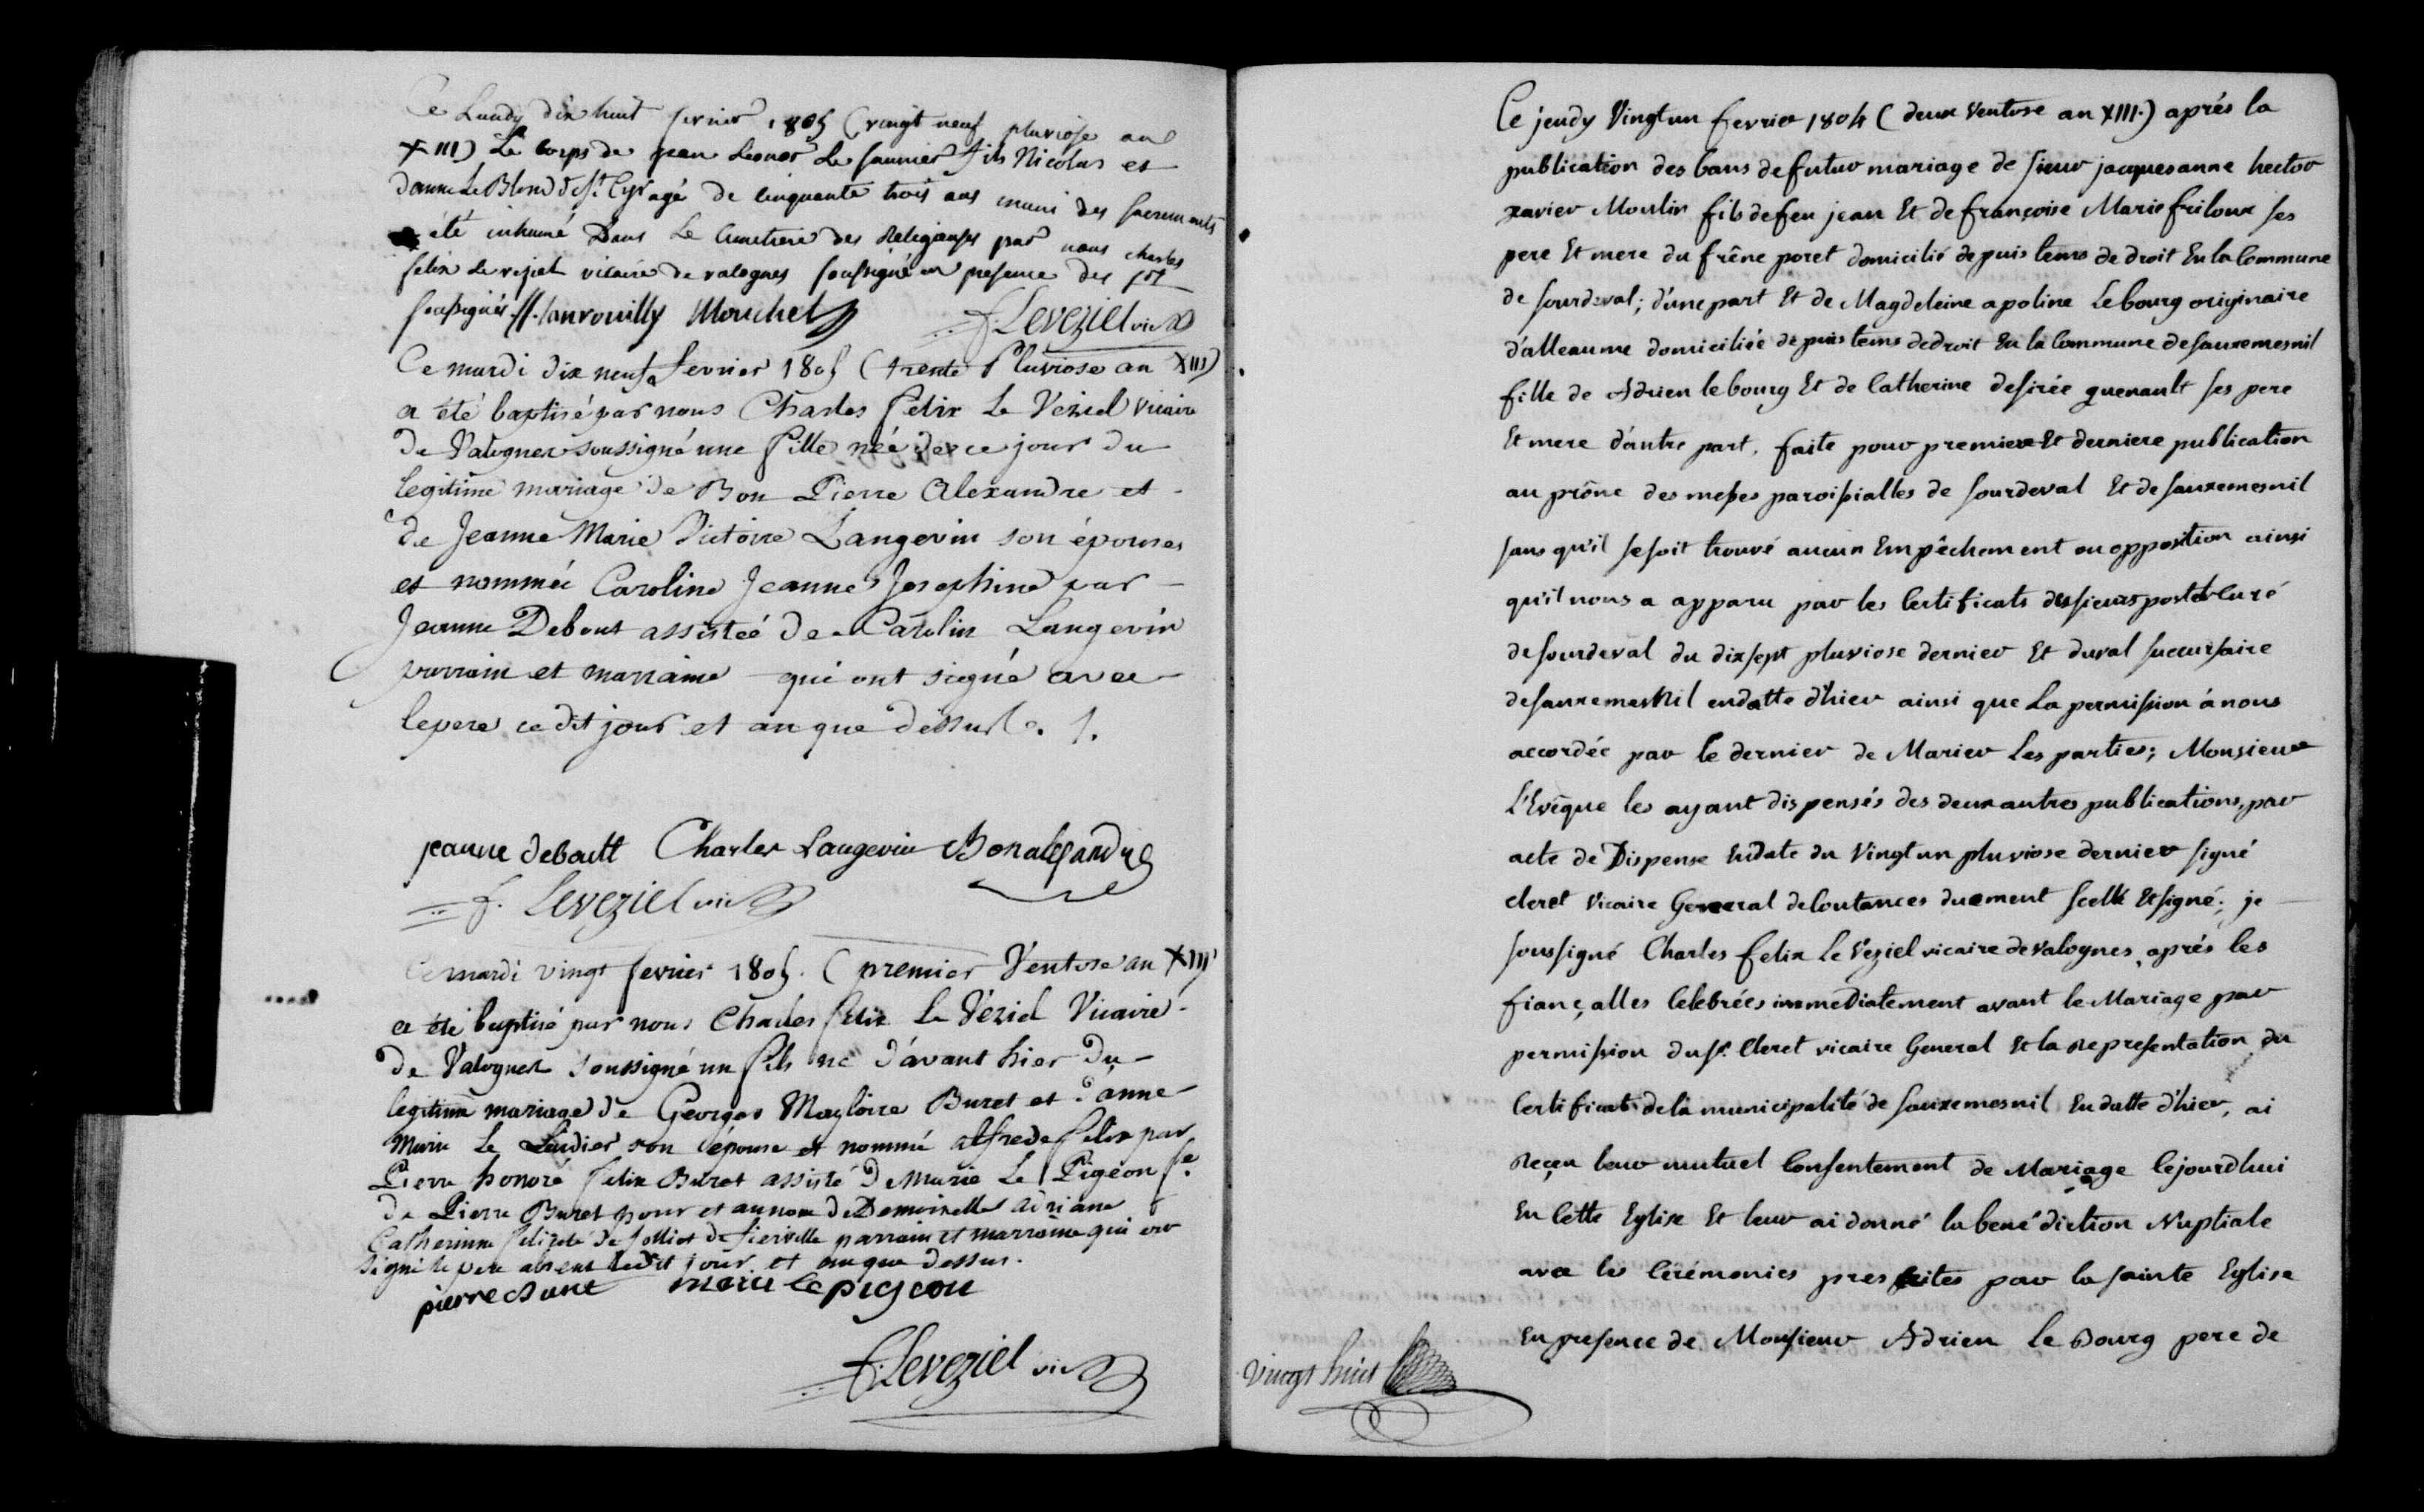 Ce Lundy dix huit fevrier 1805 (vingt neuf pluviose an
XIII) Le corps de jean Leonor Le saunier fils Nicolas et
danne Le Blond de St Cyr agé de cinquante trois ans muni des sacrements
été inhumé Dans Le Cimetiere des Religieuses par nous charles
felix Le veziel vicaire de valognes soussigné en presence des
soussignés Mouchet
F. Leveziel vic
Ce mardi dix neuf fevrier 1805 (trente Pluviose an XIII)
a été baptisé par nous Charles Felix Le Veziel Vicaire
de Valognes soussigné une fille née de ce jour du
legitime mariage de Bon Pierre Alexandre et
de Jeanne Marie Victoire Langevin son épouse
et nommée Caroline Jeanne Josephine par
Jeanne Debout assistée de Carolin Langevin
parrain et marraine qui ont signé avec
le pere ce dit jour et an que dessus
jeanne deboutt Charles Langevin Bon alexandre
F. Leveziel vic
Ce mardi vingt fevrier 1805. (premier Ventose an XIII)
a été baptisé par nous Charles felix Le Véziel Vicaire
de Valognes soussigné un fils né d'avant hier du
legitime mariage de Georges Magloire Buret et d'anne
Marie Le Ledier son épouse et nommé alfrede felix par
Pierre honoré felix Buret assisté de Marie Le Pigeon fe.
de Pierre Buret pour et au nom de Demoiselle Adriane
Catherinne felicité de folliot de fierville parrain et marraine qui ont
signé le pere absent ledit jour et an que dessus.
pierre buret marie le pigeon
F. Leveziel vic
Ce jeudy Vingt un fevrier 1804 (deux Ventose an XIII.) aprés la
publication des bans de futur mariage de sieur jacques anne hector
xavier Moulin fils de feu jean Et de françoise Marie friloux ses
pere Et mere du frêne poret domicilié depuis tems de droit En la Commune
de sourdeval; d'une part Et de Magdeleine apoline Lebourg originaire
d'alleaume domiciliée depuis tems de droit En la Commune de sauxemesnil
fille de Adrien lebourg Et de Catherine desirée guenault ses pere
Et mere d'autre part, faite pour premiere Et derniere publication
au prône des messes paroissialles de sourdeval Et de sauxemesnil
sans qu'il se soit trouvé aucun Empêchement ou opposition ainsi
qu'il nous a apparu par les Certificats des sieurs postel Curé
de sourdeval du dix sept pluviose dernier Et duval succursaire
de sauxemesnil en datte d'hier ainsi que La permission à nous
accordée par le dernier de Marier Les parties; Monsieur
L'Evêque les ayant dispensés des deux autres publications, par
acte de Dispense En date du Vingt un pluviose dernier signé
cleret Vicaire General de Coutances duement scellé Et signé; je
soussigné Charles felix Le Veziel vicaire de valognes, aprés les
fiançalles Celebrées immediatement avant le Mariage par
permission du sr. Cleret vicaire General Et la Representation du
Certificat de la municipalité de sauxemesnil En datte d'hier, ai
Reçeu leur mutuel Consentement de Mariage Cejourdhui
En Cette Eglise Et leur ai donné la benédiction Nuptiale
avec les Cérémonies prescrites par la sainte Eglise
En presence de Monsieur Adrien Le Bourg pere de
vingt huit